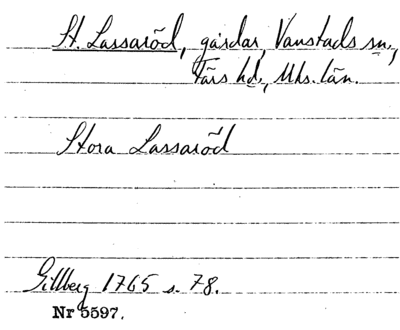 St. Lassaröd, gårdar, Vanstads sn.,
Färs hd., Mhs. län.
Stora Lassaröd
Gillberg 1765 s. 78.
Nr 5597.